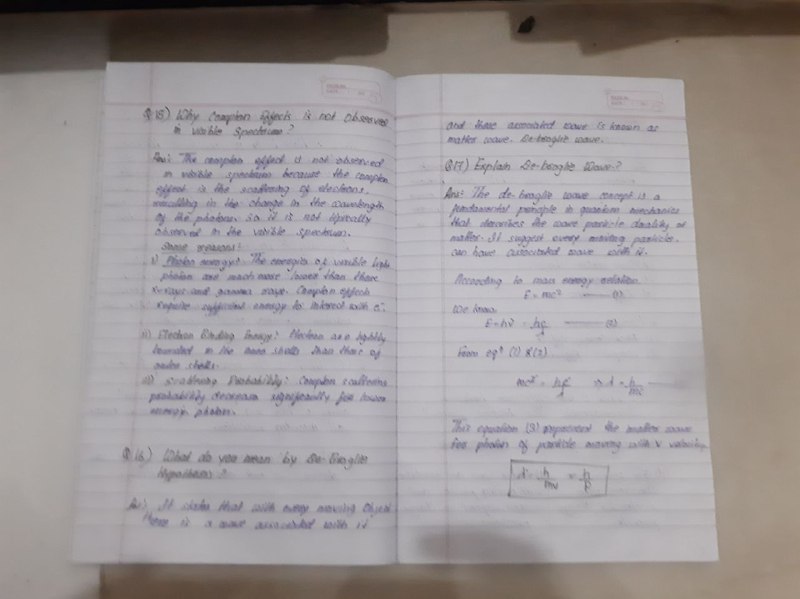 Q 15) Why Compton Effects is not Observed
in visible Spectrum?
Ans: The compton effect is not observed
in visible spectrum because the compton
effect is the scattering of electrons,
resulting in the change in the wavelength
of the photon. So it is not typically
observed in the visible spectrum.
Some reasons:
i) Photon energy: The energies of visible light
photon are much more lower than those
x-rays and gamma rays. Compton effects
require sufficient energy to interect with e⁻.
ii) Electron Binding Energy: Electron are tightly
bounded in the inner shells than those of
outer shells.
iii) Scattering Probability: Compton scattering
probability decreases significantly for lower
energy photon.
Q 16) What do you mean by De-Broglie
Hypothesis?
Ans: It states that with every moving Object
there is a wave associated with it
and these associated wave is known as
matter wave. De-broglie wave.
Q17) Explain De-broglie Wave?
Ans: The de-broglie wave concept is a
fundamental principle in quantum mechanics
that describes the wave particle duality of
matter. It suggest every moving particle.
can have associated wave with it.
According to mass energy relation
E = mc² (1)
We know
E = hν = hc/λ (2)
From eqⁿ (1) & (2)
mc² = hc/λ ⇒ λ = h/mc
This equation (3) represent the matter wave
for photon of particle moving with v velocity
λ = h/mv = h/p